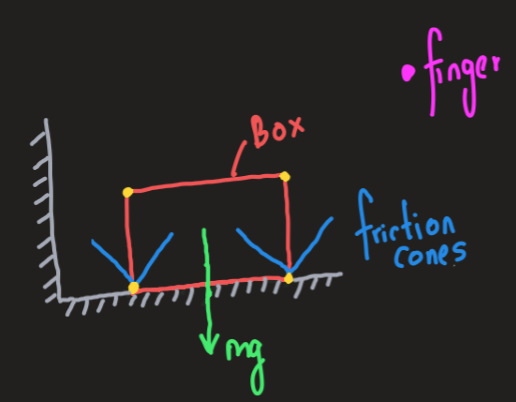 finger
Box
friction
cones
mg